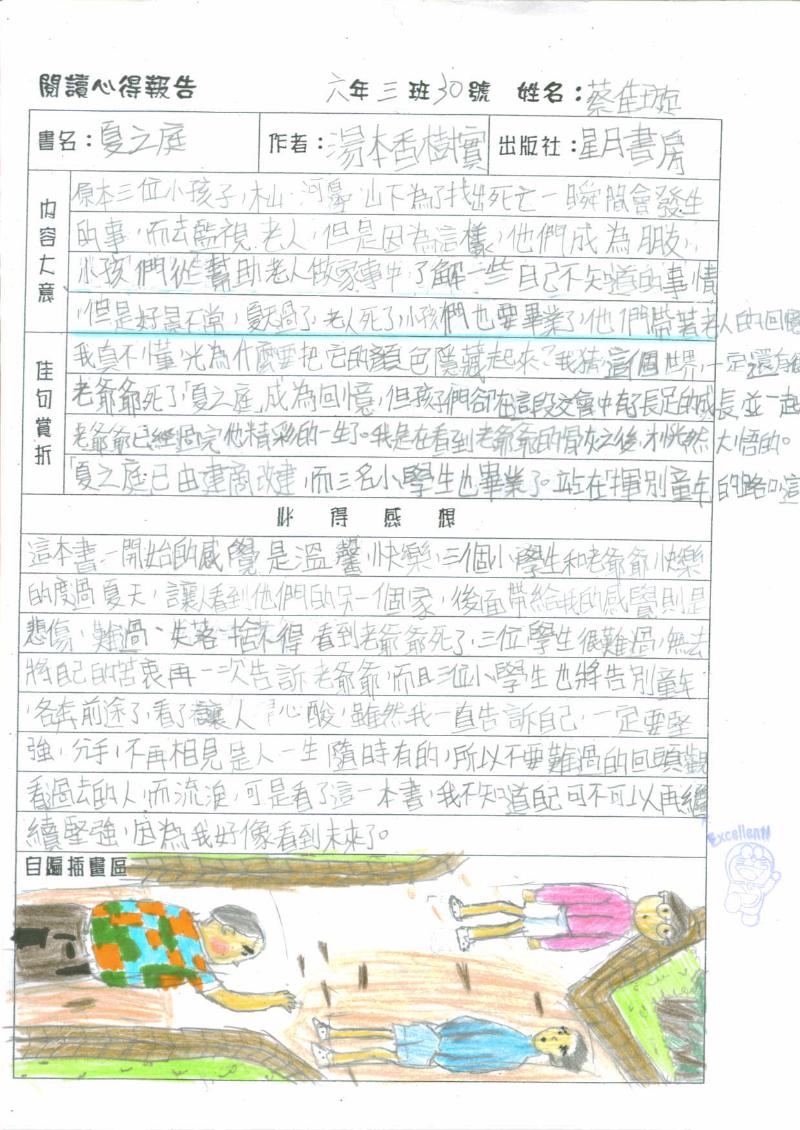 閱讀心得報告 六年三班30號 姓名：蔡佳璇
書名：夏之庭 作者：湯本香樹實 出版社：星月書房
內容大意
原本三位小孩子，木山、河邊、山下為了找出死亡一瞬間會發生
的事，而去監視老人，但是因為這樣，他們成為朋友，
小孩們從幫助老人做家事中，了解一些自己不知道的事情
，但是好景不常，夏天過了，老人死了，小孩們也要畢業了，他們帶著老人的回憶
佳句賞折
我真不懂，光為什麼要把它的顏色隱藏起來？我猜這個世界，一定還有
老爺爺死了「夏之庭」成為回憶，但孩子們卻在這段交會中有了長足的成長，並一起
老爺爺已經過完他精彩的一生了。我是在看到老爺爺的骨灰之後，才恍然大悟的。
「夏之庭」已由建商改建，而三名小學生也畢業了。站在「揮別童年」的路口，這
心得感想
這本書一開始的感覺是溫馨、快樂，三個小學生和老爺爺快樂
的度過夏天，讓人看到他們的另一個家，後面帶給我的感覺則是
悲傷，難過、失落、捨不得，看到老爺爺死了，三位學生很難過，無法
將自己的苦衷再一次告訴老爺爺，而且三位小學生也將告別童年
，各奔前途了，看了讓人心酸，雖然我一直告訴自己，一定要堅
強，分手，不再相見是人一生隨時有的，所以不要難過的回頭觀
看過去的人，而流淚，可是看了這一本書，我不知道自己可不可以再繼
續堅強，因為我好像看到未來了。
自編插畫區
Excellent